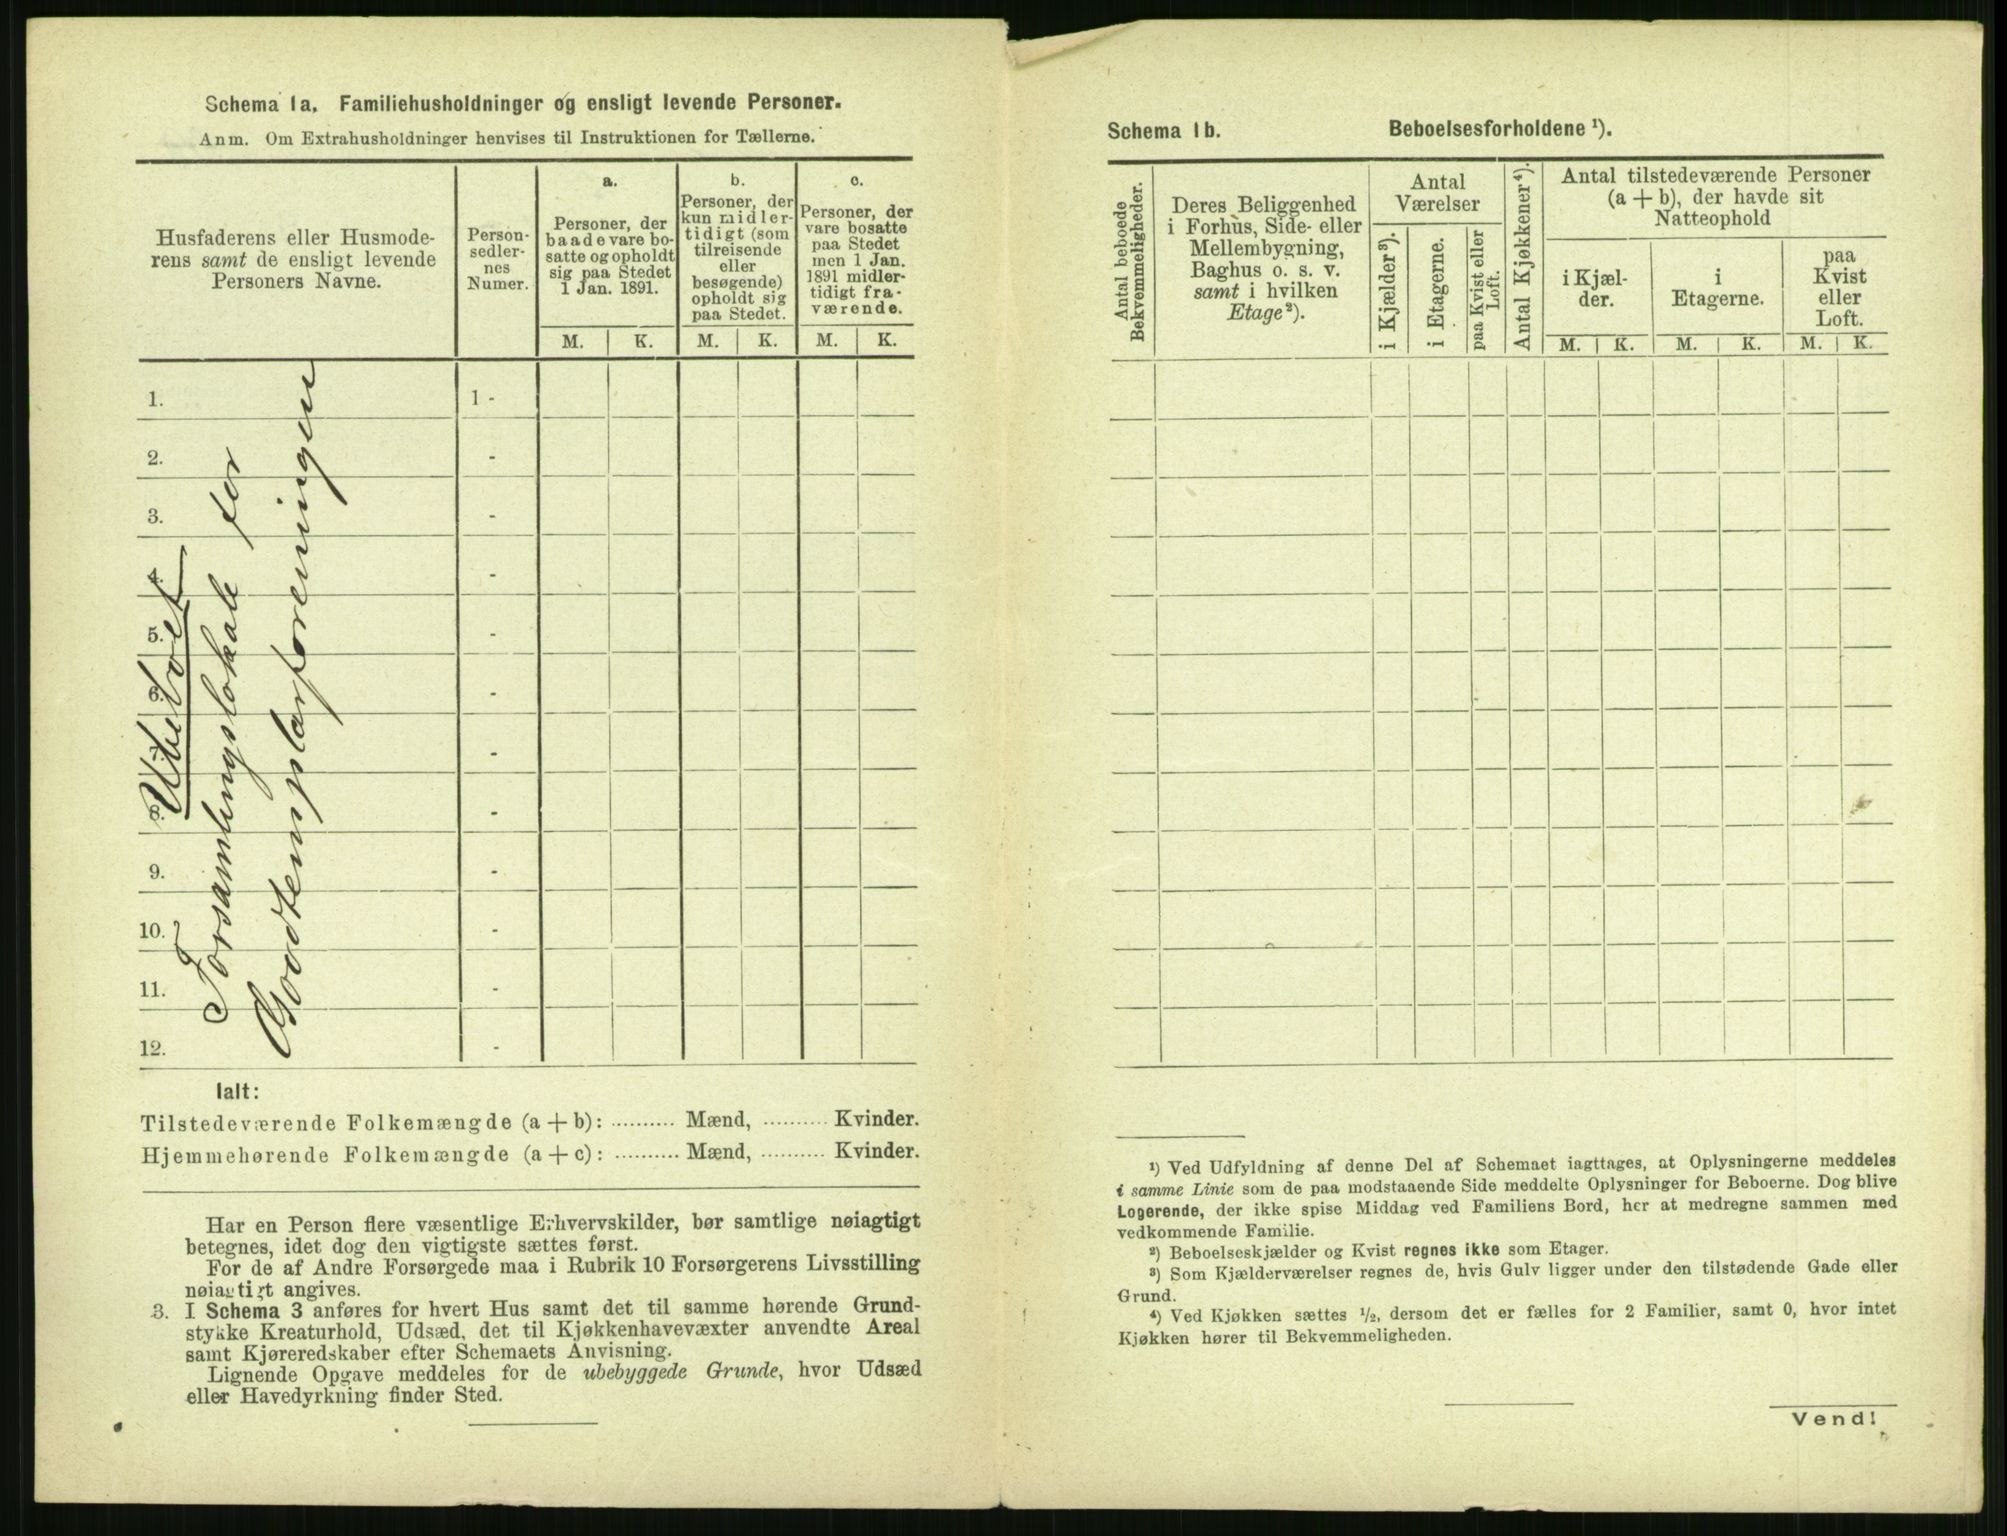 Schema 1a. Familiehusholdninger og ensligt levende Personer.
Anm. Om Extrahusholdninger henvises til Instruktionen for Tællerne.
Husfaderens eller Husmode-
rens samt de ensligt levende
Personers Navne.
Person-
sedler-
nes
Numer.
a.
Personer, der
baade vare bo-
satte og opholdt
sig paa Stedet
1 Jan. 1891.
b.
Personer, der
kun midler-
tidigt (som
tilreisende
eller
besøgende)
opholdt sig
paa Stedet.
c.
Personer, der
vare bosatte
paa Stedet
men 1 Jan.
1891 midler-
tidigt fra-
værende.
M. K. M. K. M. K.
1. 1 -
2. -
3. -
4. -
5. -
6. -
7. -
8. -
9. -
10. -
11. -
12. -
Ubeboet
Forsamlingslokale for
Goodtemplarforeningen
Ialt:
Tilstedeværende Folkemængde (a + b): .......... Mænd, .......... Kvinder.
Hjemmehørende Folkemængde (a + c): .......... Mænd, .......... Kvinder.
Har en Person flere væsentlige Erhvervskilder, bør samtlige nøiagtigt
betegnes, idet dog den vigtigste sættes først.
For de af Andre Forsørgede maa i Rubrik 10 Forsørgerens Livsstilling
nøiagtigt angives.
3. I Schema 3 anføres for hvert Hus samt det til samme hørende Grund-
stykke Kreaturhold, Udsæd, det til Kjøkkenhavevæxter anvendte Areal
samt Kjøreredskaber efter Schemaets Anvisning.
Lignende Opgave meddeles for de ubebyggede Grunde, hvor Udsæd
eller Havedyrkning finder Sted.
Schema 1b. Beboelsesforholdene ¹).
Antal beboede
Bekvemmeligheder.
Deres Beliggenhed
i Forhus, Side- eller
Mellembygning,
Baghus o. s. v.
samt i hvilken
Etage²).
Antal
Værelser
i Kjælder³).
i Etagerne.
paa Kvist eller
Loft.
Antal Kjøkkener⁴).
Antal tilstedeværende Personer
(a + b), der havde sit
Natteophold
i Kjæl-
der.
i
Etagerne.
paa
Kvist
eller
Loft.
M. K. M. K. M. K.
¹) Ved Udfyldning af denne Del af Schemaet iagttages, at Oplysningerne meddeles
i samme Linie som de paa modstaaende Side meddelte Oplysninger for Beboerne. Dog blive
Logerende, der ikke spise Middag ved Familiens Bord, her at medregne sammen med
vedkommende Familie.
²) Beboelseskjælder og Kvist regnes ikke som Etager.
³) Som Kjælderværelser regnes de, hvis Gulv ligger under den tilstødende Gade eller
Grund.
⁴) Ved Kjøkken sættes ½, dersom det er fælles for 2 Familier, samt 0, hvor intet
Kjøkken hører til Bekvemmeligheden.
Vend!